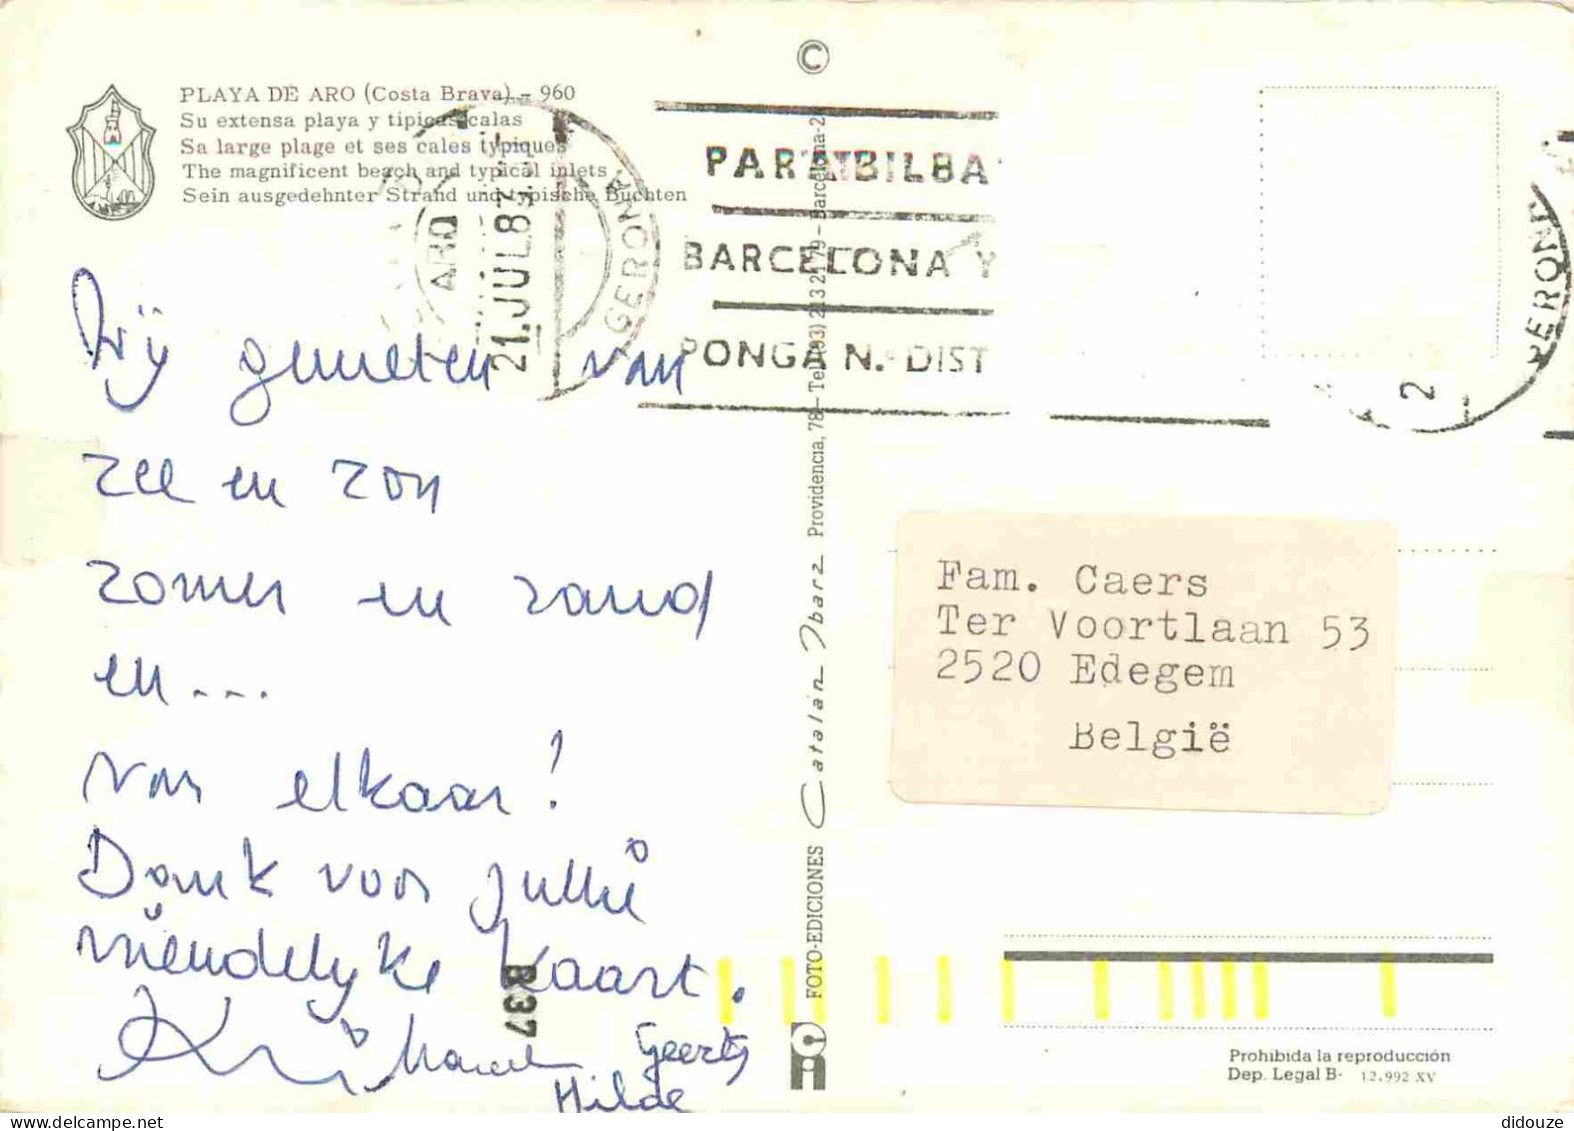 ©
PLAYA DE ARO (Costa Brava) - 960
Su extensa playa y tipicas calas
Sa large plage et ses cales typiques
The magnificent beach and typical inlets
Sein ausgedehnter Strand und typische Buchten
ARO
21.JUL83
GERONA
PARA BILBA
BARCELONA Y
PONGA N. DIST
GERONA
2
Wij genieten van
zee en zon
zomer en zand
en...
van elkaar!
Dank voor jullie
vriendelijke kaart.
Geert
Hilde
B37
FOTO-EDICIONES Catalán Ibarz Providencia, 78 - Tel. (93) 213 21 79 - Barcelona-2
Fam. Caers
Ter Voortlaan 53
2520 Edegem
België
Prohibida la reproducción
Dep. Legal B- 12.992 XV
didouze